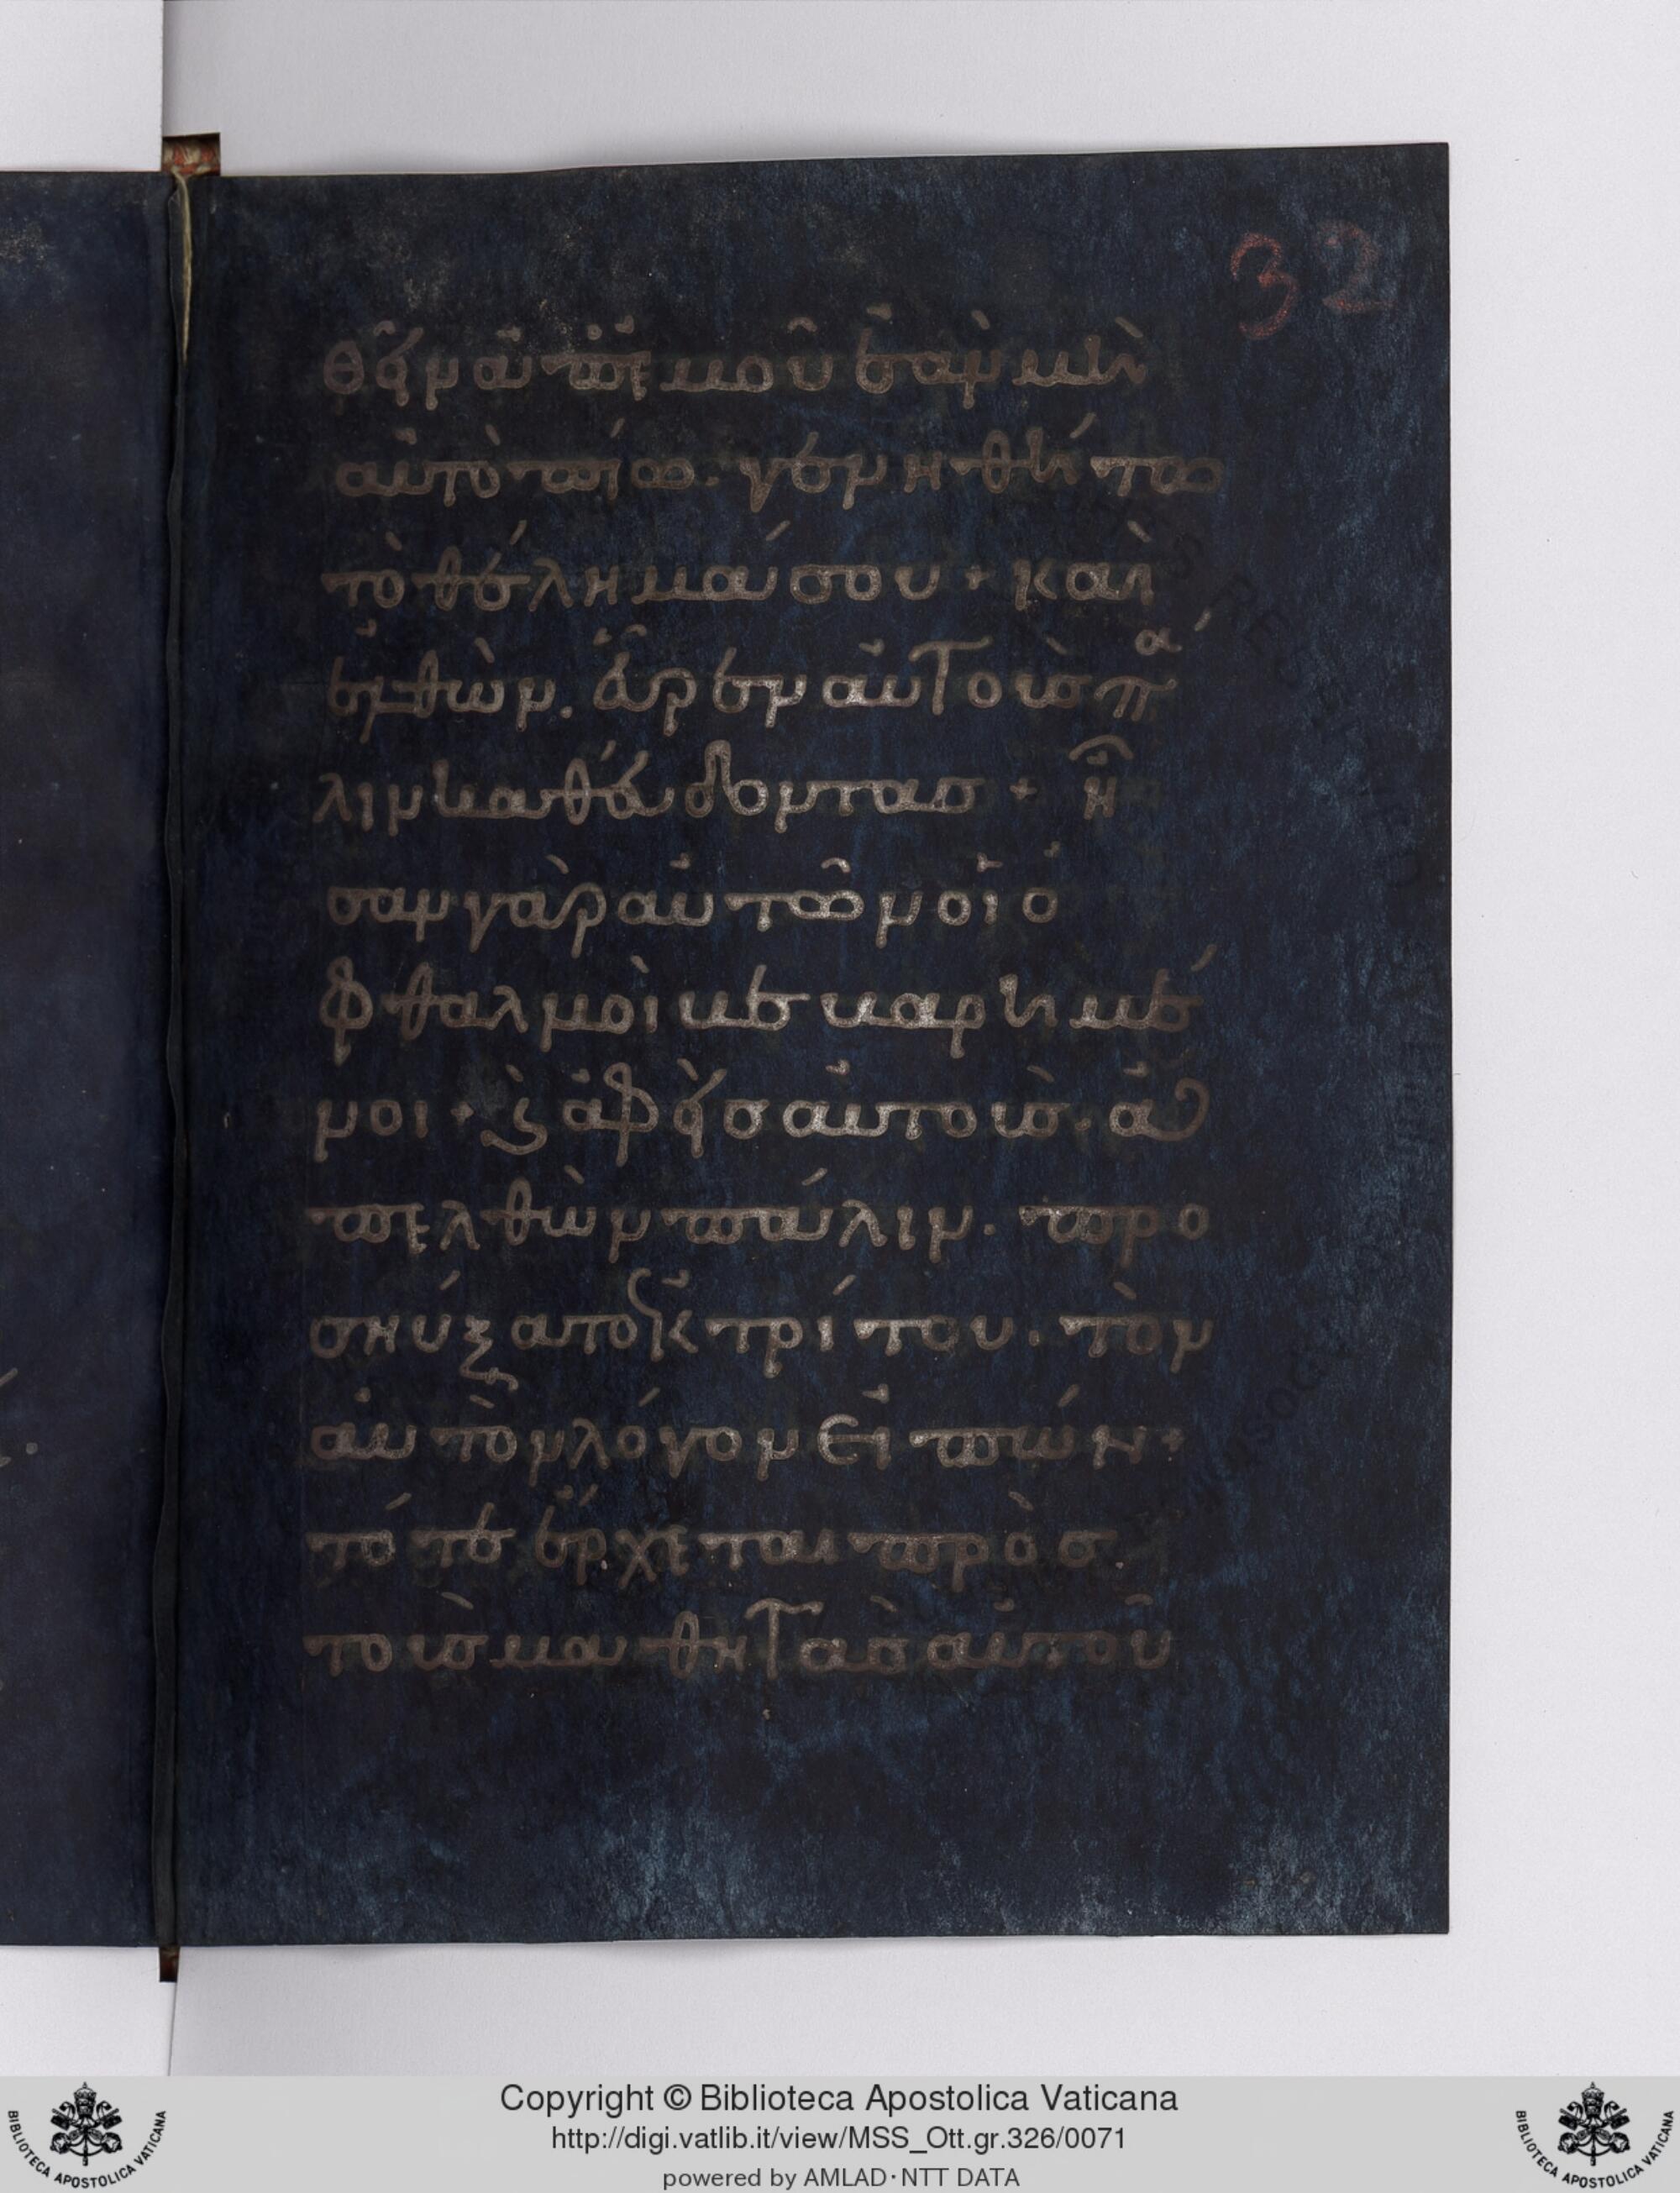 32
θεῖν ἀπ' ἐμοῦ ἐὰν μὴ
αὐτὸ πίω. γενηθήτω
τὸ θέλημά σου + καὶ
ἐλθὼν. εὗρεν αὐτοὺς πά
λιν καθεύδοντας + ἦ
σαν γὰρ αὐτῶν οἱ ὀ
φθαλμοὶ βεβαρημέ
νοι + καὶ ἀφεὶς αὐτοὺς. ἀ
πελθὼν πάλιν. προ
σηύξατο ἐκ τρίτου. τὸν
αὐτὸν λόγον εἰπών +
τότε ἔρχεται πρὸς
τοὺς μαθητὰς αὐτοῦ
Copyright © Biblioteca Apostolica Vaticana
http://digi.vatlib.it/view/MSS_Ott.gr.326/0071
powered by AMLAD·NTT DATA
BIBLIOTECA APOSTOLICA VATICANA
BIBLIOTECA APOSTOLICA VATICANA